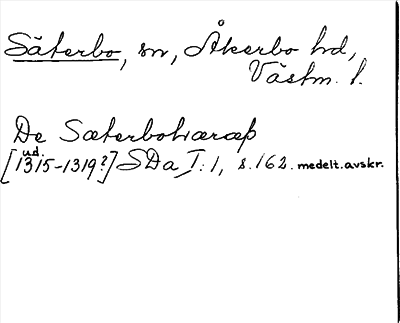 Säterbo, sn, Åkerbo hd,
Västm. l.
De Sæterbohæræþ
[ud. 1315-1319?] SDa I:1, s. 162. medelt. avskr.